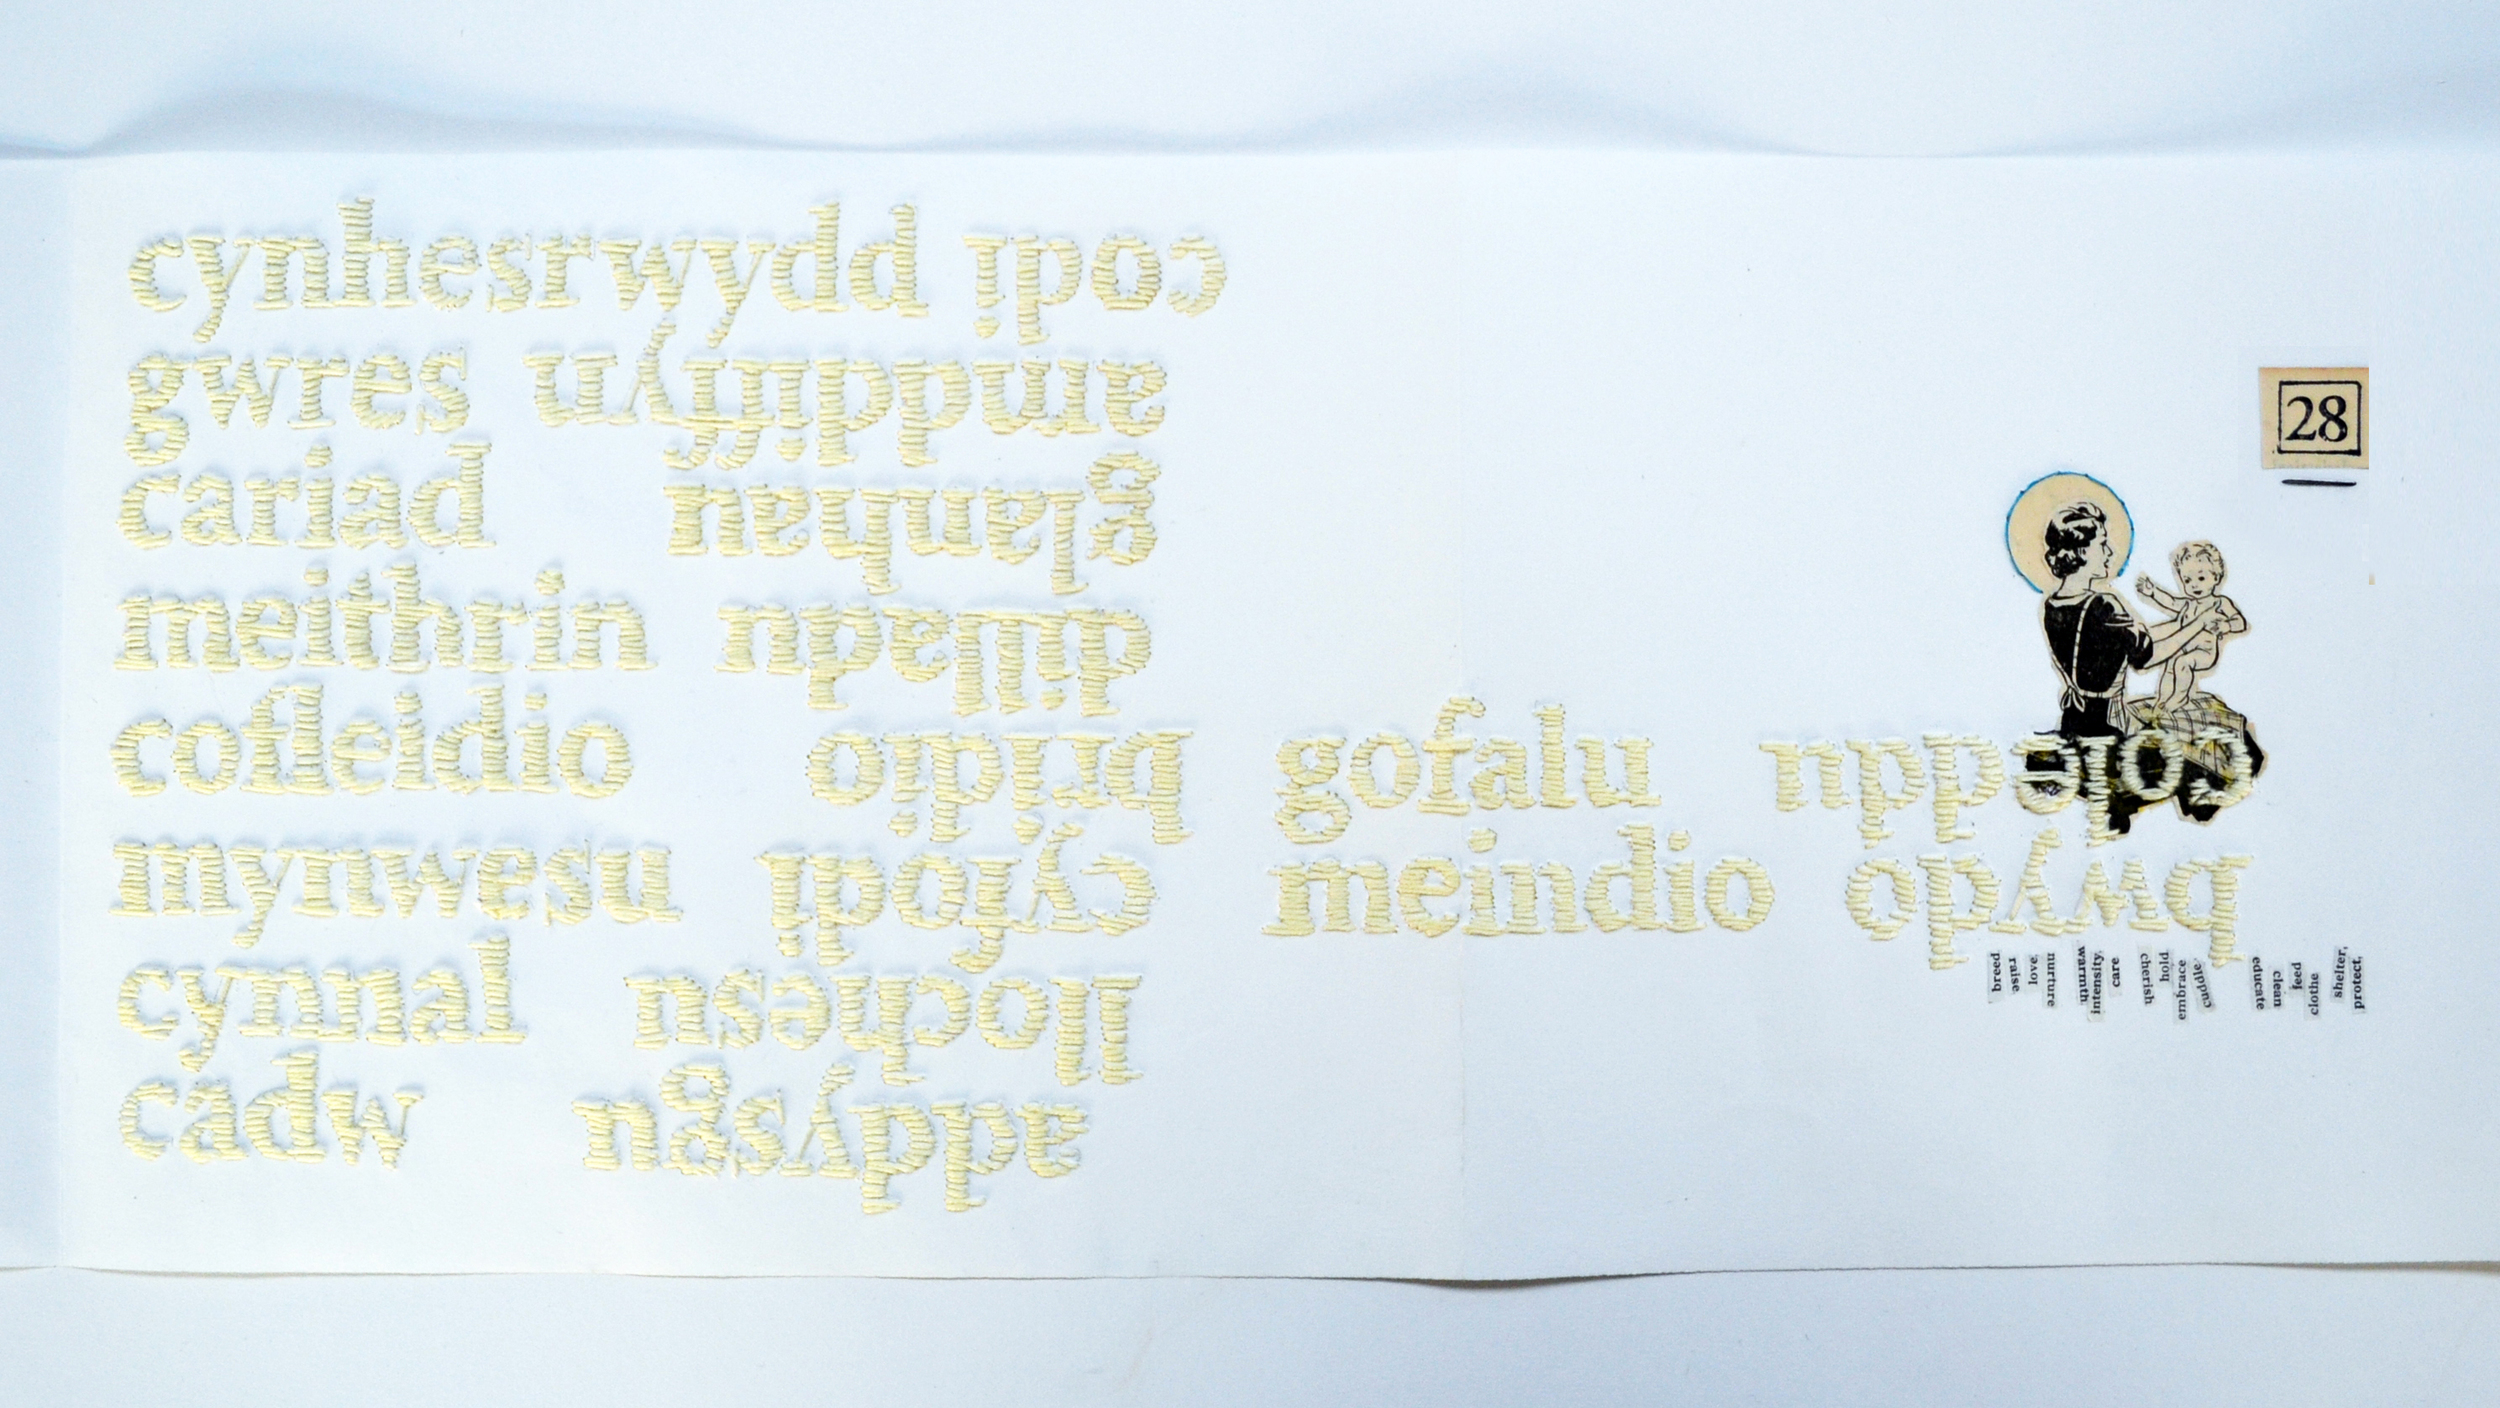 cynhesrwydd codi
gwres amddiffyn
cariad glanhau
meithrin dilladu
cofleidio bridio
mynwesu cyfodi
cynnal llochesu
cadw addysgu
28
gofalu coleddu
meindio bwydo
breed
raise
love,
nurture
warmth,
intensity,
care.
cherish
hold
embrace
cuddle,
educate
clean
feed
clothe
shelter,
protect,